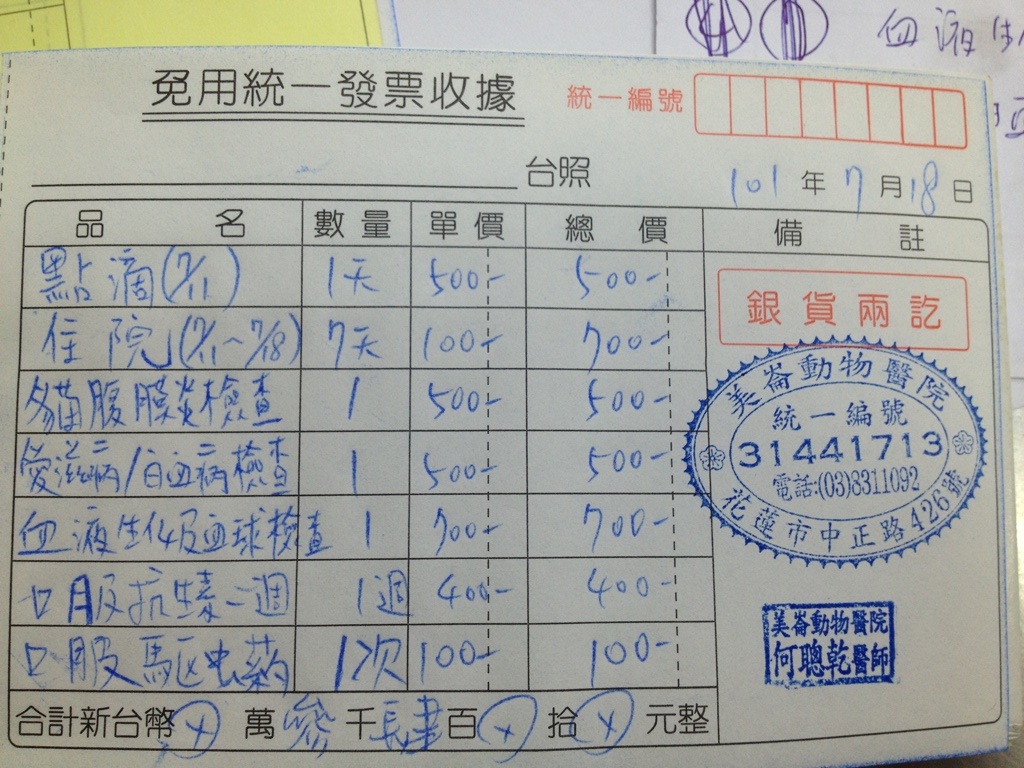 血液生
免用統一發票收據
統一編號
台照
101年7月18日
品名 數量 單價 總價 備註
點滴(7/11) 1天 500- 500-
住院(7/11~7/18) 7天 100- 700-
貓腹膜炎檢查 1 500- 500-
愛滋病/白血病檢查 1 500- 500-
血液生化及血球檢查 1 700- 700-
口服抗生素一週 1週 400- 400-
口服驅虫药 1次 100- 100-
合計新台幣 萬 參 千 肆 百 拾 元整
銀貨兩訖
美崙動物醫院
統一編號
31441713
電話:(03)8311092
花蓮市中正路426號
美崙動物醫院
何聰乾醫師